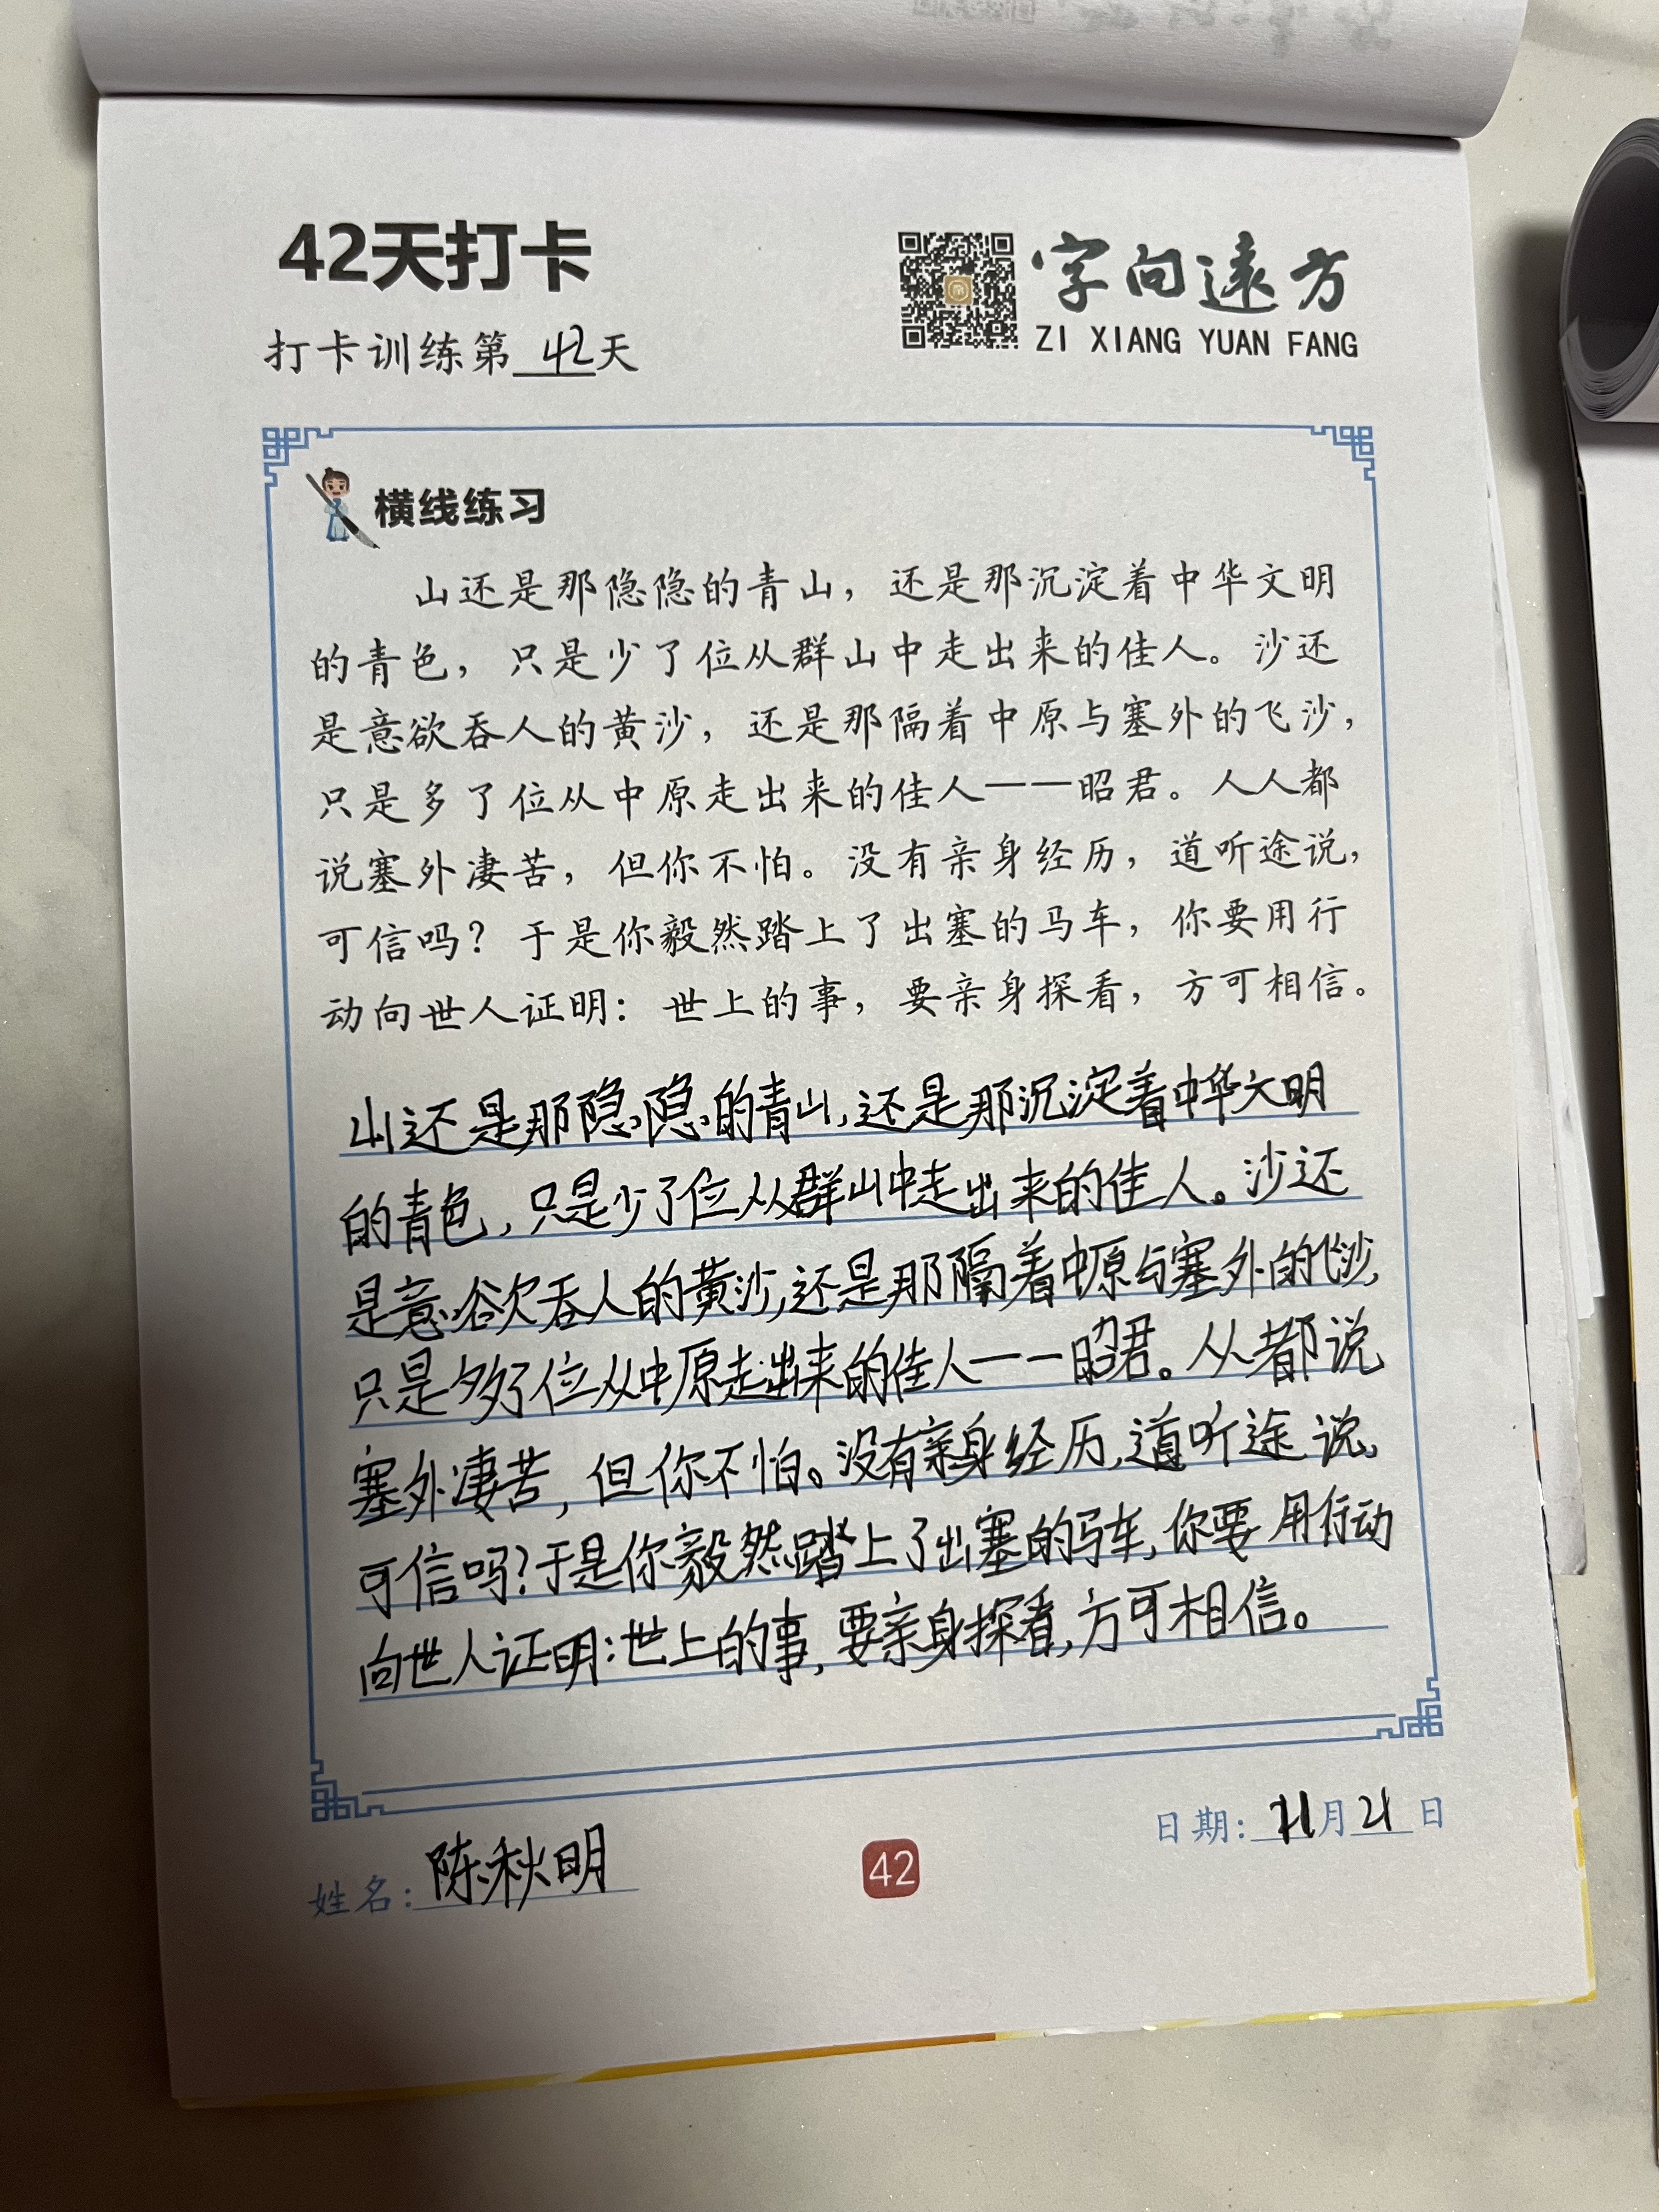 42天打卡
字向遠方
ZI XIANG YUAN FANG
打卡训练第 42 天
横线练习
山还是那隐隐的青山，还是那沉淀着中华文明
的青色，只是少了位从群山中走出来的佳人。沙还
是意欲吞人的黄沙，还是那隔着中原与塞外的飞沙，
只是多了位从中原走出来的佳人——昭君。人人都
说塞外凄苦，但你不怕。没有亲身经历，道听途说，
可信吗？于是你毅然踏上了出塞的马车，你要用行
动向世人证明：世上的事，要亲身探看，方可相信。
山还是那隐隐的青山,还是那沉淀着中华文明
的青色,只是少了位从群山中走出来的佳人。沙还
是意欲吞人的黄沙,还是那隔着中原与塞外的飞沙,
只是多了位从中原走出来的佳人——昭君。人人都说
塞外凄苦,但你不怕。没有亲身经历,道听途说,
可信吗?于是你毅然踏上了出塞的马车,你要用行动
向世人证明:世上的事,要亲身探看,方可相信。
日期: 11月21日
姓名: 陈秋明
42